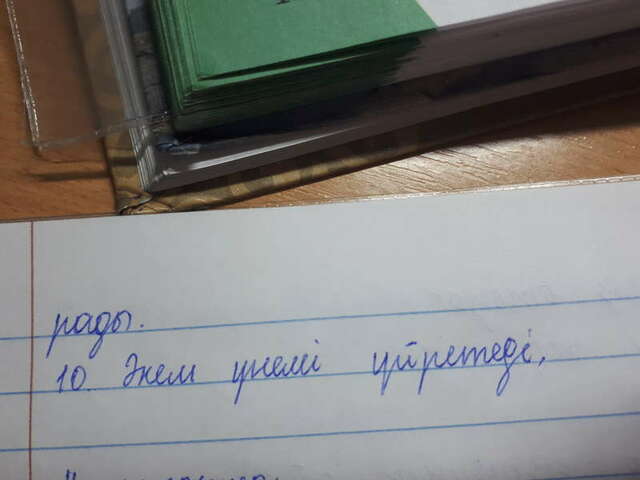 рады.
10. Әкем үнемі үйретеді,